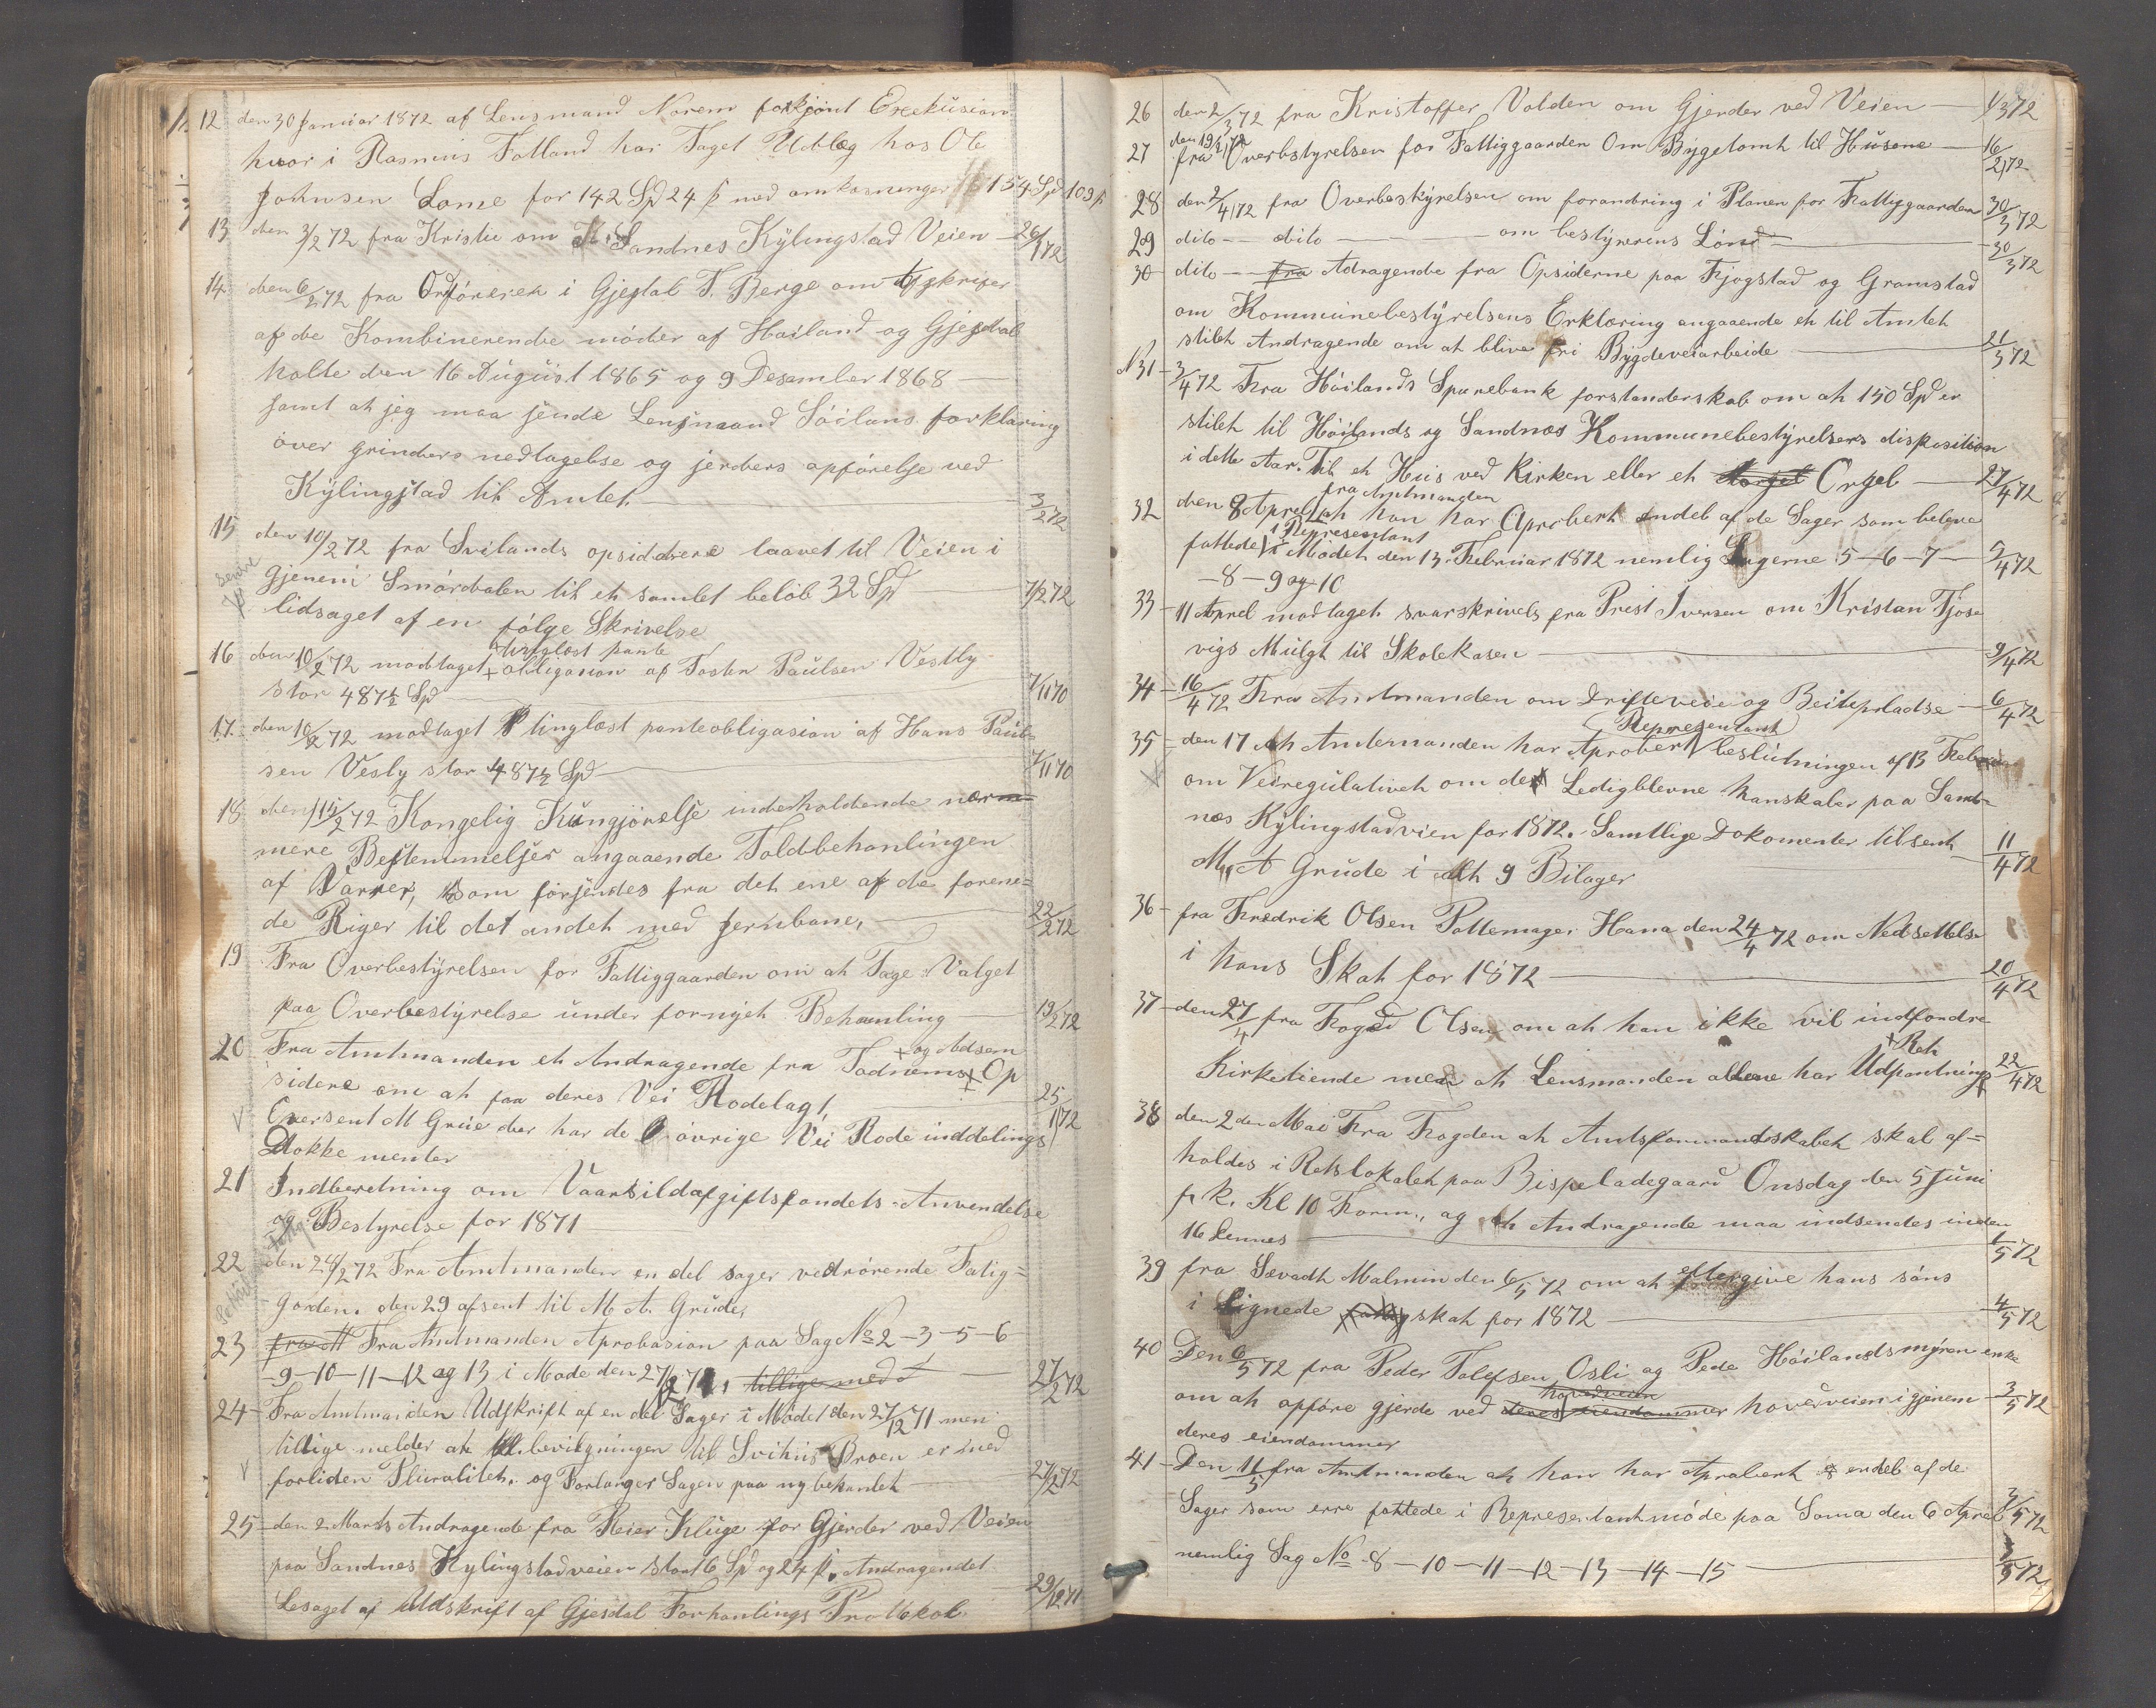 12 den 30 Januar 1872 af Lensmand Norem forkjönt Exekusion
hvor i Rasmus Folland har Taget Udlæg hos Ole
Johnsen Lome for 142 Spd 24 ß med omkosninger 154 Spd 103 ß
13 den 3/2 72 fra Kristie om Sandnes Kylingstad Veien — 26/1 72
14 den 6/2 72 fra Ordföreren i Gjesdal T. Berge om Afskrifer
af de Kombinerende möder af Höiland og Gjesdal
holte den 16 August 1865 og 9 Desember 1868 —
samt at jeg maa sende Lensmand Söilans forklaring
over grinders nedtagelse og jerders opförelse ved
Kylingstad til Amtet. — 3/2 72
15 den 10/2 72 fra Svilands opsiddere laavet til Veien i
Gjenem Smördalen til et samlet belöb 32 Spd — 7/2 72
lidsaget af en fölge Skrivelse
tinglæst pante
16 den 10/2 72 modtaget + obligasion af Tosten Paulsen Vestly
stor 487½ Spd — 7/11 70
17 den 10/2 72 modtaget tinglæst panteobligasion af Hans Paul=
sen Vesly stor 487½ Spd — 7/11 70
18 den 15/2 72 Kongelig Kungjörelse inderholdende nær
mere Bestemmelser angaaende Toldbehanlingen
af Varrer, som forsendes fra det ene af de forene=
de Riger til det andet med Jernbane, — 22/2 72
19 Fra Overbestyrelsen for Fattiggaarden om at Tage Valget
paa Overbestyrelse under fornyet Behanling — 19/2 72
+ og Adsem
20 Fra Amtmanden et Andragende fra Tadnems + Op
sidere om at faa deres Vei Rodelagt, — 25/1 72
Oversent M Grue der har de övrige Vei Rode inddelings
Dokke menter
21 Indberetning om Vaarsildafgiftsfondets Anvendelse
og Bestyrelse for 1871
22 den 24/2 72 Fra Amtmanden en del sager vedrörende Fatig=
gorden. den 29 afsent til M A. Grude,
23 Fra Amtmanden Aprobasion paa Sag No 2 – 3 – 5 – 6
– 9 – 10 – 11 – 12 og 13 i Möde den 27/12 71, tillige med — 27/2 72
24 – Fra Amtmanden Udskrift af en del Sager i Mödet den 27/12 71 men
tillige melder at bevilgningen til Svihus Broen er med
forliden Pluralitet. og Forlanger Sagen paa ny behandlet — 27/2 72
25 – den 2 Marts Andragende fra Reier Kluge for Gjerder ved Veien
paa Sandnes Kylingstadveien stort 6 Spd og 24 ß. Andragendet
Lesaget af Uldskrift af Gjesdal Forhanlings Protokol. 29/12 71
26 den 2/3 72 fra Kristoffer Volden om Gjerder ved Veien — 1/3 72
27 fra Overbstyrelsen for Fattiggaarden Om Bygetomt til Husene — 16/2 72
28 den 2/4 72 fra Overbeskyrelsen om forandring i Planen for Fattiggaarden 30/3 72
29 dito — dito — om bestyrerens Lönd — 30/3 72
30 dito — fra Adragende fra Opsiderne paa Fjogstad og Gramstad
om Kommunebestyrelsens Erklæring angaaende et til Amtet
stilet Andragende om at blive fri Bygdeveiarbeide — 21/3 72
N 31 – 3/4 72 Fra Höilands Sparebank forstanderskab om at 150 Spd er
stilet til Höilands og Sandnæs Kommunebestyrelsers disposition
i dette Aar. Til et Hus ved Kirken eller et Orgel — 27/4 72
fra Amtmanden
32 den 8 Aprel at han har Aprobert endel af de Sager som beleve
i Representant
fattede i Mödet den 13. Februar 1872 nemlig Sagerne 5 – 6 – 7 — 5/4 72
– 8 – 9 og 10
33 – 11 Aprel modtaget svarskrivels fra Prest Iversen om Kristan Tjose
vigs Mulgt til Skolekasen — 9/4 72
34 – 16/4 72 Fra Amtmanden om Drifteveie og Beitepladse — 6/4 72
(Representant)
35 – den 17 at Amtemanden har Aprobert beslutningen af 13 Februar
om Veiregulativet om de Ledigblevne Manskaber paa Sand=
næs Kylingstadvien for 1872. Samtlige Dokomenter tilsent — 11/4 72
M. A Grude i alt 9 Bilager
36 – fra Fredrik Olsen Pottemager Hana den 24/4 72 om Nedsettelse
i hans Skat for 1872 — 20/4 72
37 – den 27/4 fra Foged Olsen om at han ikke vil indfordre
+ Ret
Kirketiende men at Lensmanden allene har Udpantnings + 22/4 72
38 den 2 den Mai Fra Fogden at Amtsformandskabet skal af=
holdes i Retslokalet paa Bispeladegaard Onsdag den 5 Juni
f. k. Kl 10 Form., og at Andragende maa indsendes inden
16 dennes — 1/5 72
39 fra Sevadt Malmin den 6/5 72 om at eftergive hans söns
i lignede skat for 1872 — 4/5 72
40 Den 6/5 72 fra Peder Tolefsen Osli og Pede Höilandsmyren enke
hovedveien
om at opföre gjerde ved deres eiendommer hovedveien igjenem — 3/5 72
deres eiendommer
41 – Den 11/5 fra Amtmanden at han har Aprobert endel af de
Sager som erre fattede i Representantmöde paa Soma den 6 Aprel 3/5 72
nemlig Sag No 8 – 10 – 11 – 12 – 13 – 14 – 15 — 3/5 72